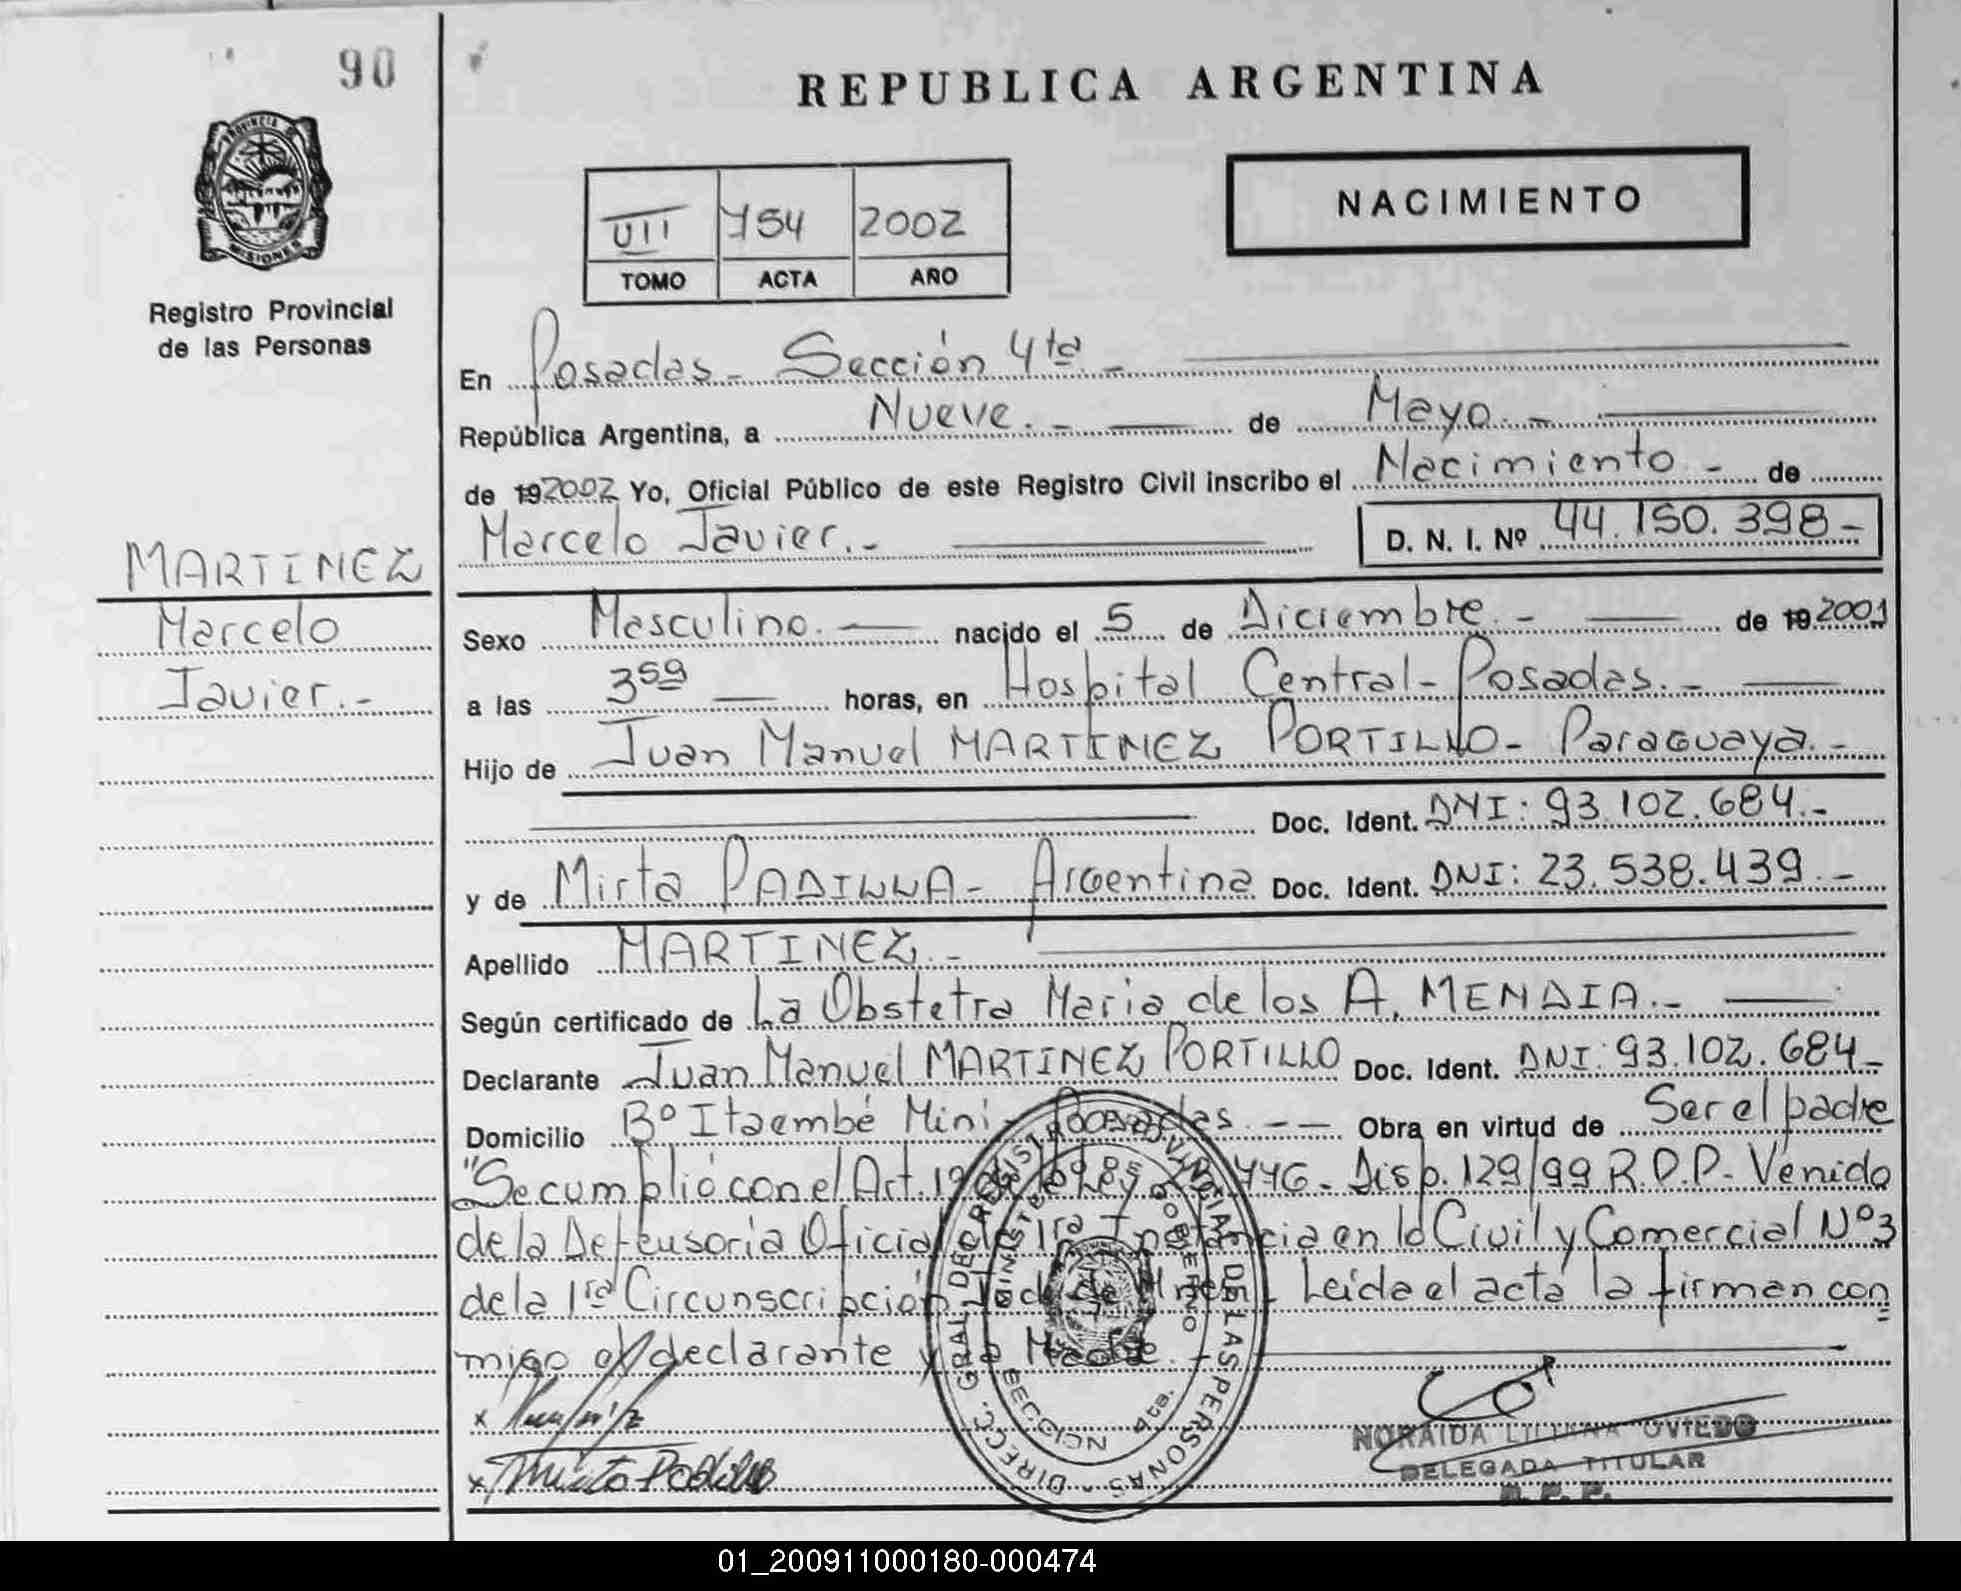 90
REPUBLICA ARGENTINA
NACIMIENTO
VII 754 2002
TOMO ACTA AÑO
PROVINCIA DE MISIONES
Registro Provincial
de las Personas
En Posadas - Sección 4ta. -
República Argentina, a Nueve. - de Mayo. -
de 192002 Yo, Oficial Público de este Registro Civil inscribo el Nacimiento - de
Marcelo Javier. - D. N. I. Nº 44.150.398 -
MARTINEZ
Marcelo
Javier. -
Sexo Masculino. nacido el 5 de Diciembre. - de 19 2001
a las 3 59 horas, en Hospital Central - Posadas. -
Hijo de Juan Manuel MARTINEZ PORTILLO - Paraguaya. -
Doc. Ident. DNI: 93.102.684. -
y de Mirta PADILLA - Argentina Doc. Ident. DNI: 23.538.439. -
Apellido MARTINEZ. -
Según certificado de La Obstetra Maria de los A. MENDIA. -
Declarante Juan Manuel MARTINEZ PORTILLO Doc. Ident. DNI: 93.102.684 -
Domicilio Bº Itaembé Mini - Posadas. - - Obra en virtud de Ser el padre
"Se cumplió con el Art. Ley 446 - Disp. 129/99 R.P.P. - Venido
de la Defensoria Oficial de 1ra Instancia en lo Civil y Comercial Nº 3
de la 1ra Circunscripción Leida el acta la firman con
migo el declarante y la Madre. -
x
x Mirta Padilla
DIRECC. GRAL. DE REGISTRO PROVINCIAL DE LAS PERSONAS
MINISTERIO DE GOBIERNO
SECCION 4ta.
NORAIDA LILIANA OVIEDO
DELEGADA TITULAR
R. P. P.
01_200911000180-000474